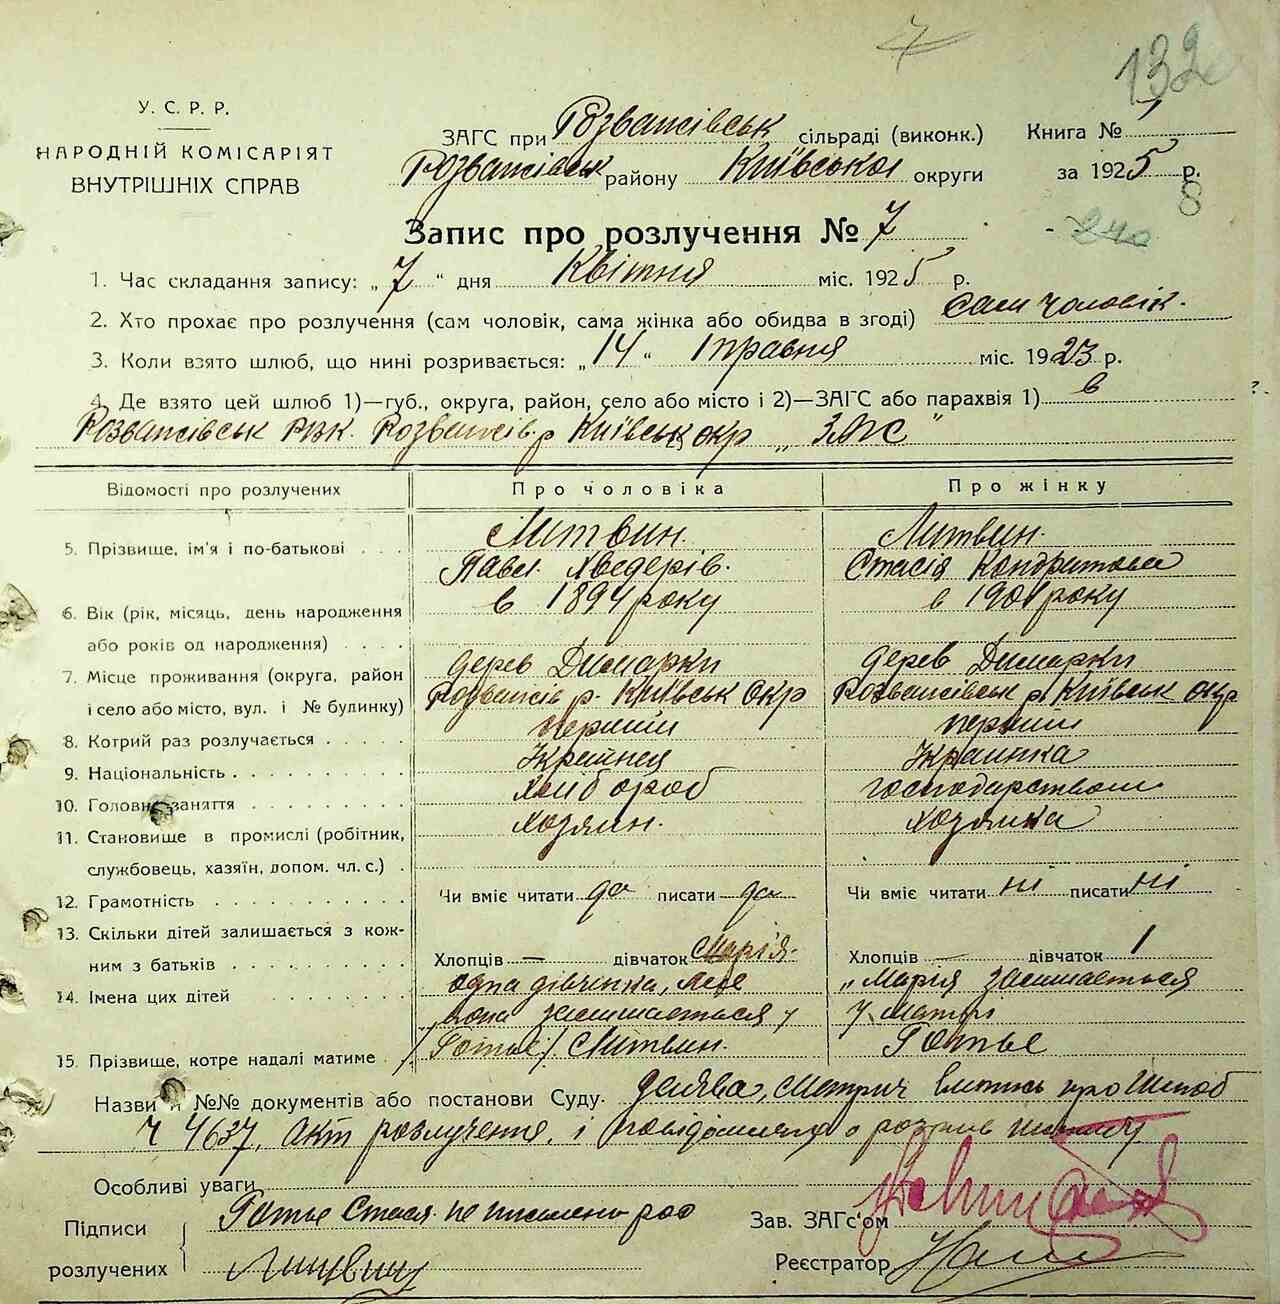 7
132
У. С. Р. Р.
НАРОДНІЙ КОМІСАРІЯТ
ВНУТРІШНІХ СПРАВ
ЗАГС при Розважівськ сільраді (виконк.) Книга №
Розважівськ району Київської округи за 1925 р.
8
Запис про розлучення № 7
1. Час складання запису: „7“ дня Квітня міс. 1925 р.
2. Хто прохає про розлучення (сам чоловік, сама жінка або обидва в згоді) Сам чоловік.
3. Коли взято шлюб, що нині розривається: „14“ травня міс. 1923 р.
4. Де взято цей шлюб 1)—губ., округа, район, село або місто і 2)—ЗАГС або парахвія 1) в
Розважівськ РВК. Розважів. р Київськ окр „ЗАГС“
Відомості про розлучених Про чоловіка Про жінку
5. Прізвище, ім'я і по-батькові Литвин. Литвин.
Павл. Хведерів. Стасія Кондратова
6. Вік (рік, місяць, день народження в 1894 року в 1901 року
або років од народження)
7. Місце проживання (округа, район дерев Димарки дерев Димарки
і село або місто, вул. і № будинку) Розважів р. Київськ Окр Розважівськ р Київськ окр
8. Котрий раз розлучається перший перший
9. Національність Українец Українка
10. Головне заняття хліб ороб господарством
11. Становище в промислі (робітник, хозяин. хозяйка
службовець, хазяїн, допом. чл. с.)
12. Грамотність Чи вміє читати да писати да Чи вміє читати ні писати ні
13. Скільки дітей залишається з кож-
ним з батьків Хлопців — дівчаток Марія. Хлопців — дівчаток 1
14. Імена цих дітей одна дівченка, але „Марія залишається
вона залишається у У матері
15. Прізвище, котре надалі матиме /Готье/ Литвин. Готье
Назви й №№ документів або постанови Суду. Заява, Метрич випись про шлюб
ч 4637, акт розлучення, і повідомлення о розрив шлюбу
Особливі уваги
Підписи Готье Стася не письмена
розлучених Литвин
Зав. ЗАГС'ом
Реєстратор